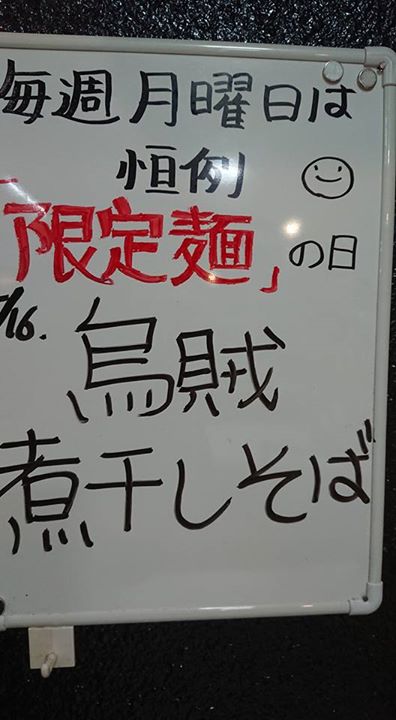 毎週月曜日は
恒例
「限定麺」の日
/16.
烏賊
煮干しそば